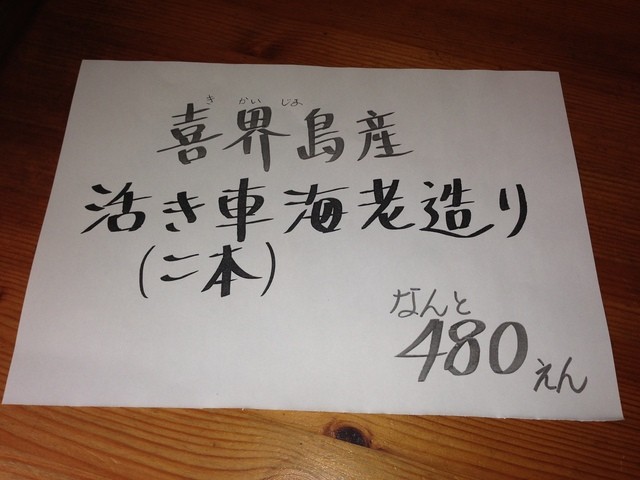 きかいじま
喜界島産
活き車海老造り
(二本)
なんと
480えん